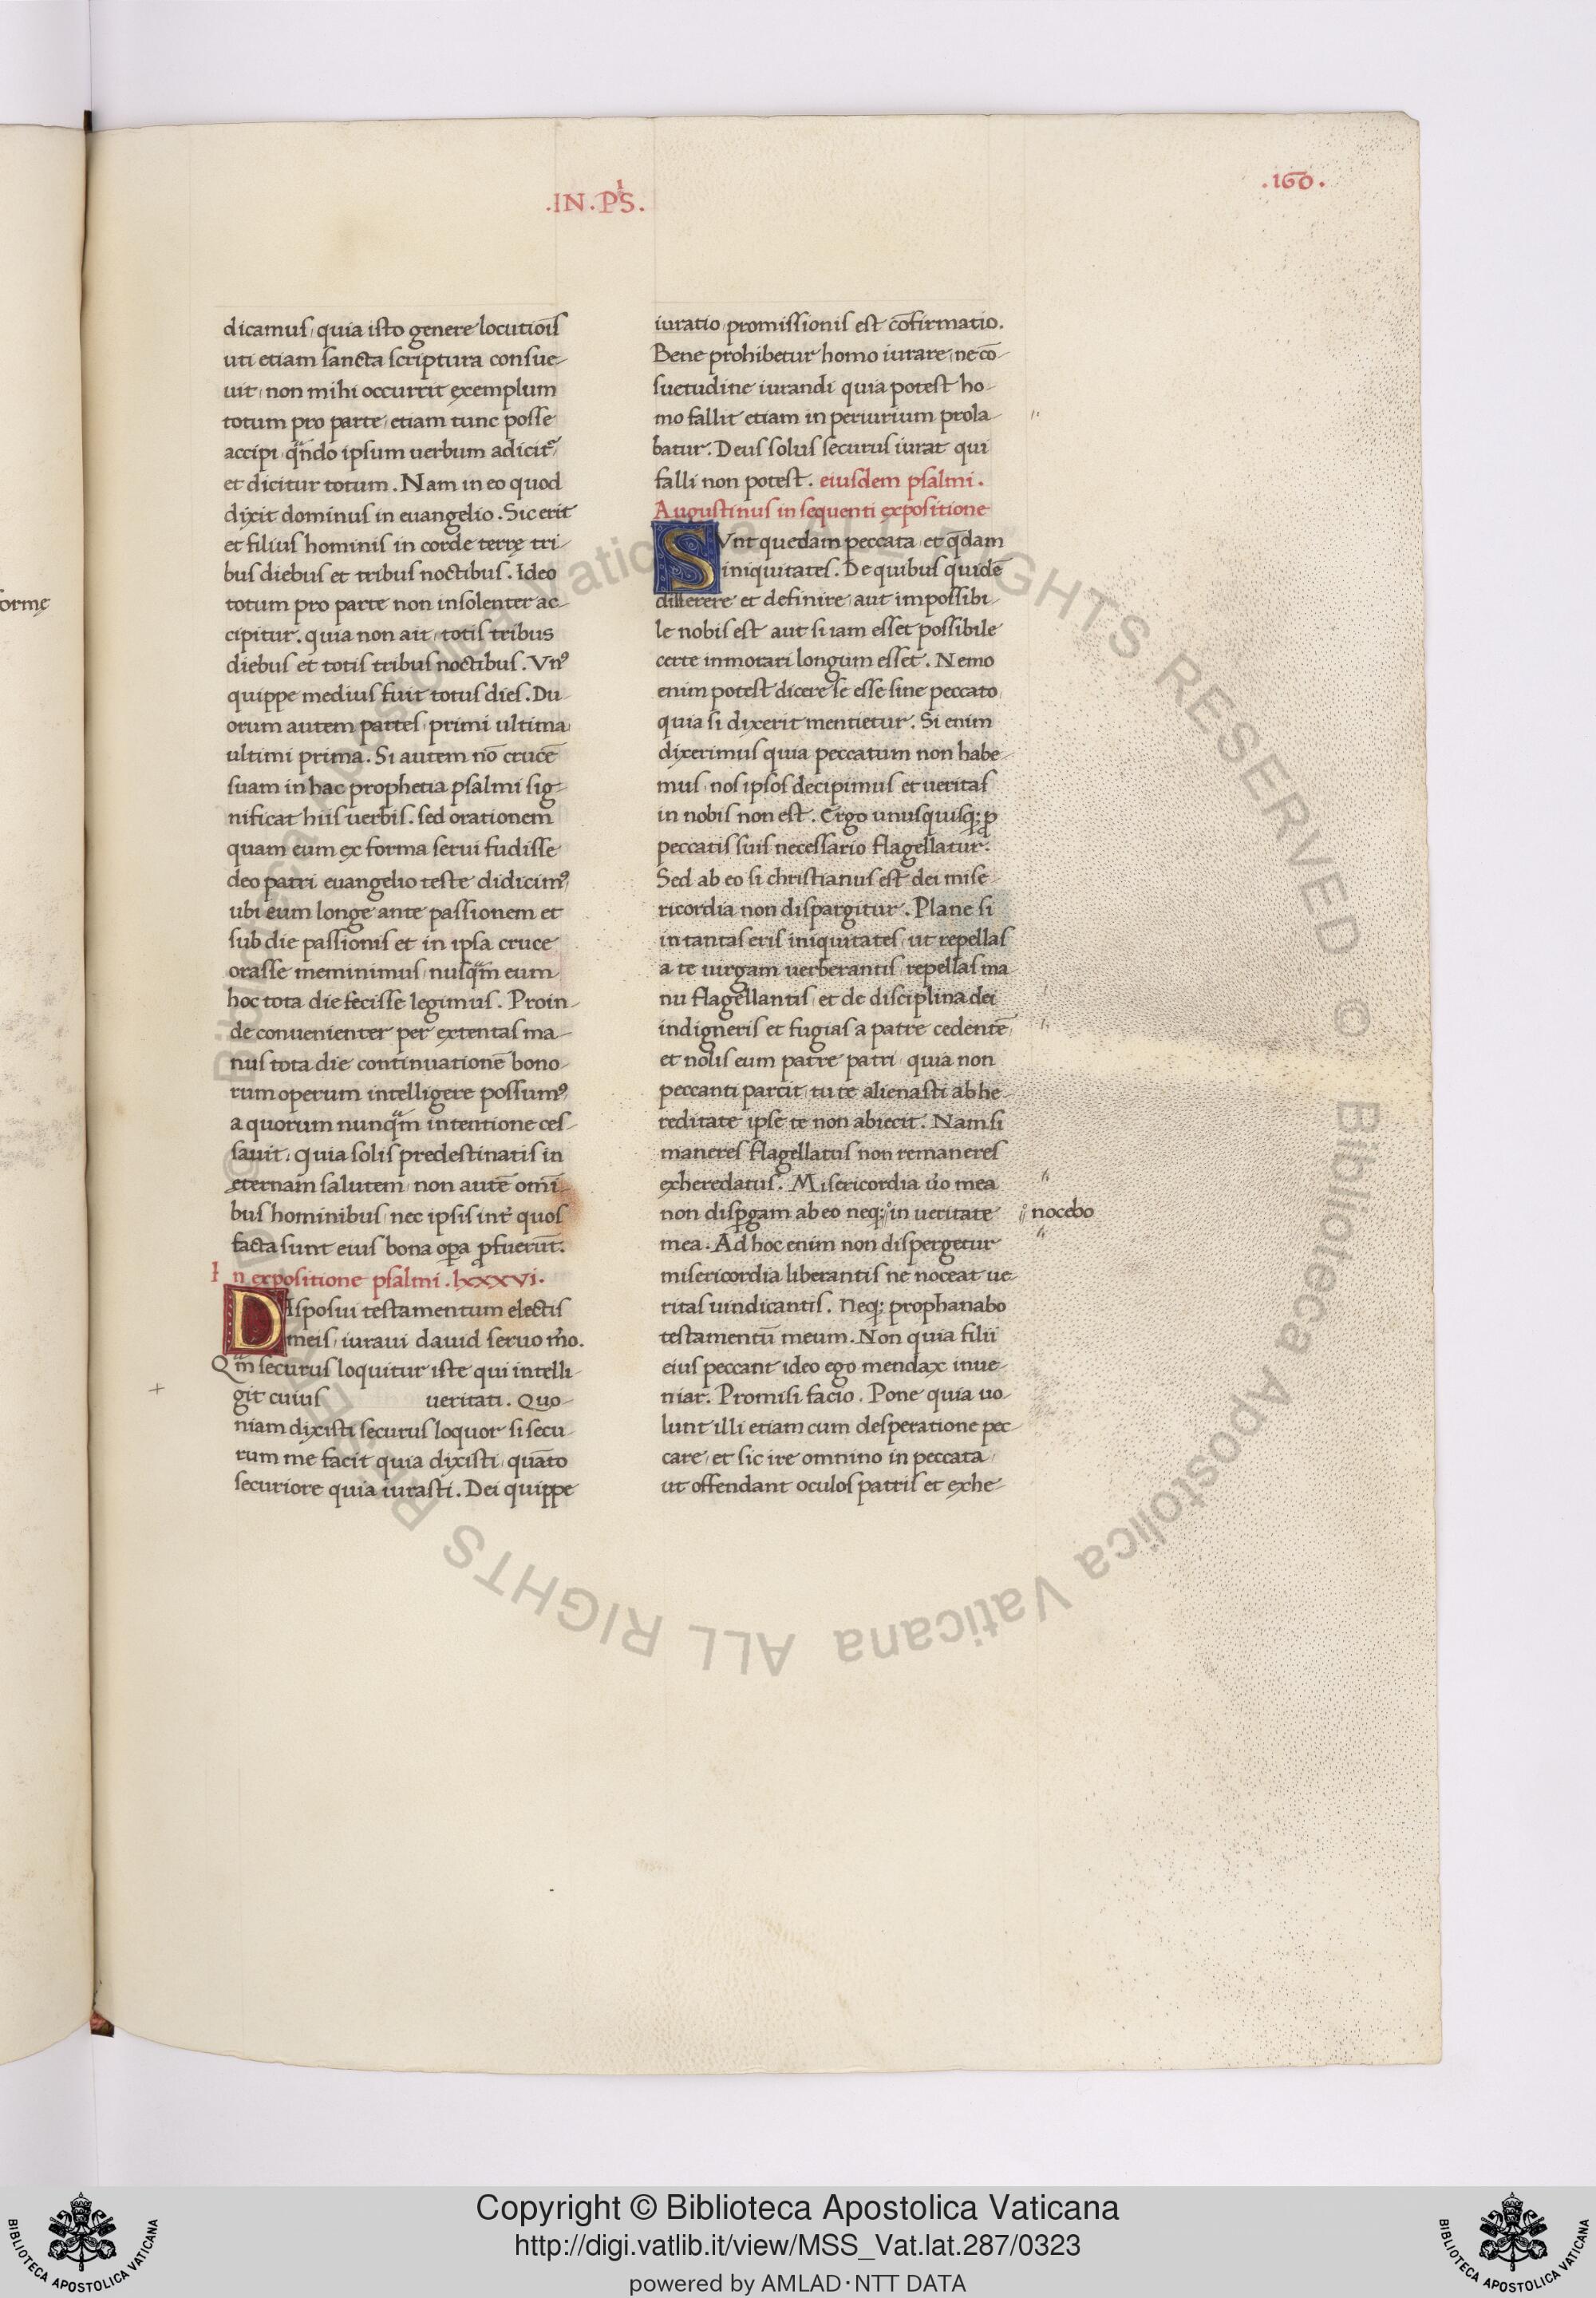 .IN.P̄S.
.160.
dicamus, quia isto genere locutiois̄
uti etiam sancta scriptura consue-
uit, non mihi occurrit exemplum
totum pro parte, etiam tunc posse
accipi, qñdo ipsum uerbum adicit᷑,
et dicitur totum. Nam in eo quod
dixit dominus in euangelio. Sic erit
et filius hominis in corde terrę tri-
bus diebus et tribus noctibus. Ideo
totum pro parte non insolenter ac-
cipitur. quia non ait, totis tribus
diebus et totis tribus noctibus. Vnꝰ
quippe medius fuit totus dies. Du-
orum autem partes, primi ultima,
ultimi prima. Si autem nō crucē
suam in hac prophetia psalmi sig-
nificat hiis uerbis. sed orationem
quam eum ex forma serui fudisse
deo patri euangelio teste didicimꝰ,
ubi eum longe ante passionem et
sub die passionis et in ipsa cruce
orasse meminimus, nusq̄m eum
hoc tota die fecisse legimus. Proin-
de conuenienter per extentas ma-
nus tota die continuationē bono-
rum operum intelligere possumꝰ,
a quorum nunq̄m intentione ces-
sauit. quia solis predestinatis in
ęternam salutem, non autē omī-
bus hominibus, nec ipsis int̄ quos
facta sunt eius bona oꝑa ꝓfuerūt.
In expositione psalmi .lxxxvi.
DIsposui testamentum electis
meis, iuraui dauid seruo m̄o.
Qm̄ securus loquitur iste qui intelli-
git cuius ueritati. Quo-
niam dixisti securus loquor si secu-
rum me facit quia dixisti, quāto
securiore quia iurasti. Dei quippe
iuratio, promissionis est cōfirmatio.
Bene prohibetur homo iurare, ne cō-
suetudine iurandi quia potest ho-
mo fallit etiam in periurium prola-
batur. Deus solus securus iurat qui
falli non potest. eiusdem psalmi.
Augustinus in sequenti expositione
SVnt quedam peccata, et q̄dam
iniquitates. De quibus quidē
disserere et definire, aut impossibi-
le nobis est aut si iam esset possibile
certe inmorari longum esset. Nemo
enim potest dicere se esse sine peccato,
quia si dixerit mentietur. Si enim
dixerimus quia peccatum non habe-
mus, nos ipsos decipimus et ueritas
in nobis non est. Ergo unusquisq; ꝓ
peccatis suis necessario flagellatur.
Sed ab eo si christianus est dei mise-
ricordia non dispargitur. Plane si
in tantas eris iniquitates, ut repellas
a te uirgam uerberantis, repellas ma-
nu flagellantis, et de disciplina dei
indigneris et fugias a patre cedentē,
et nolis eum patre patri, quia non
peccanti parcit, tu te alienasti ab he-
reditate ipse te non abiecit. Nam si
maneres flagellatus non remaneres
exheredatus. Misericordia ūo mea
non disꝑgam ab eo neq; in ueritate nocebo
mea. Ad hoc enim non dispergetur
misericordia liberantis ne noceat ue-
ritas uindicantis. Neq; prophanabo
testamentū meum. Non quia filii
eius peccant ideo ego mendax inue-
niar. Promisi facio. Pone quia uo-
lunt illi etiam cum desperatione pec-
care, et sic ire omnino in peccata,
ut offendant oculos patris et exhe-
Copyright © Biblioteca Apostolica Vaticana
http://digi.vatlib.it/view/MSS_Vat.lat.287/0323
powered by AMLAD·NTT DATA